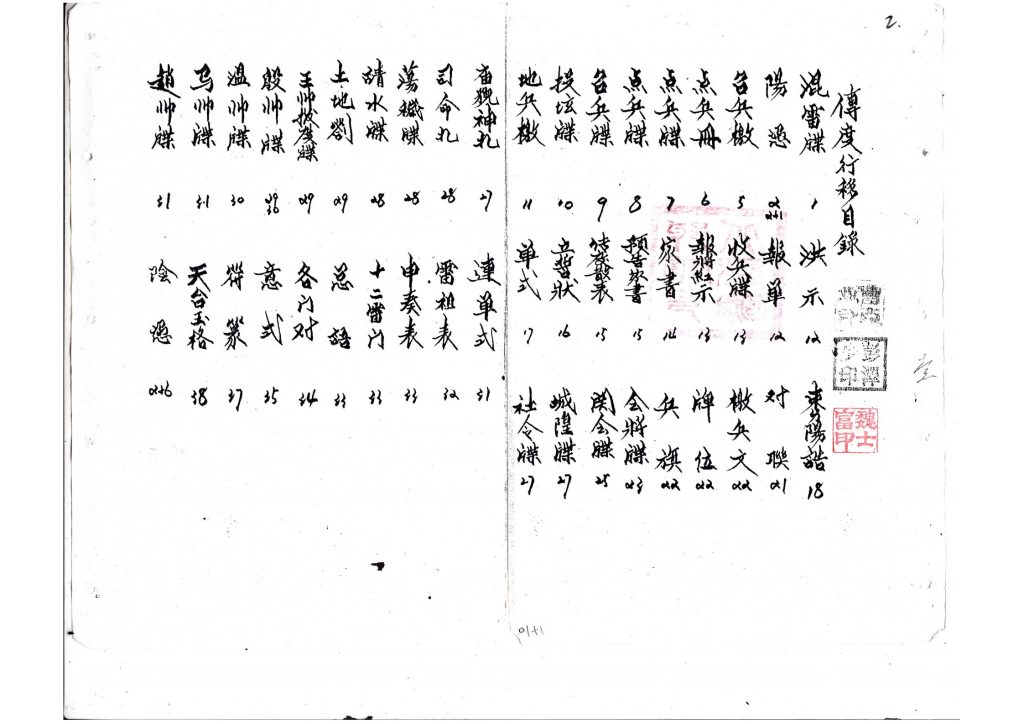 2.
傳度行移目錄
混雷牒 1 洪示 12 東陽誥 18
陽憑 報單 12 对聯 21
召兵檄 5 收兵牒 13 檄兵文 22
点兵冊 6 報將紅示 13 牌位 22
点兵牒 7 家書 14 兵旗 22
点兵牒 8 預告家書 15 会將牒 23
召兵牒 9 表 15 関会牒 25
投坛牒 10 立誓狀 16 城隍牒 27
地兵檄 11 单式 17 社令牒 27
神札 27 連单式 31
司命札 28 雷祖表 32
蕩穢牒 28 申奏表 33
請水牒 28 十二雷门 33
土地劄 29 总語 33
王帅牒 29 各门对 34
殷帅牒 29 30 意式 35
温帅牒 30 符篆 37
马帅牒 31 天台玉格 38
趙帅牒 31 陰憑
彭澤 印
魏士富甲